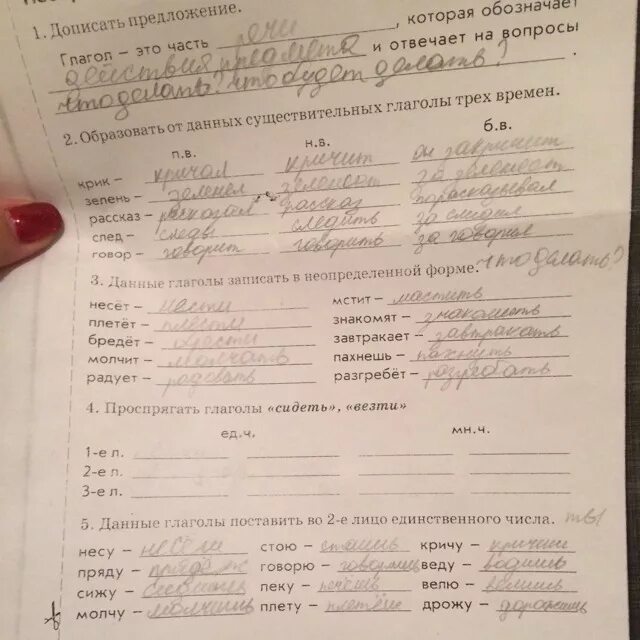 1. Дописать предложение.
Глагол – это часть речи, которая обозначает
действия предмета и отвечает на вопросы
что делать? что будет делать? .
2. Образовать от данных существительных глаголы трех времен.
п.в. н.в. б.в.
крик – кричал кричит он закричит
зелень – зеленел
рассказ – рассказал рассказ
след – следы следить
говор – говорит говорить за говорил
3. Данные глаголы записать в неопределенной форме. что делать?
несёт – нести мстит – мастить
плетёт – плести знакомят – знакомить
бредёт – завтракает – завтракать
молчит – молчать пахнешь – пахнуть
радует – радовать разгребёт –
4. Проспрягать глаголы «сидеть», «везти»
ед.ч. мн.ч.
1-е л.
2-е л.
3-е л.
5. Данные глаголы поставить во 2-е лицо единственного числа.
несу – стою – кричу –
пряду – говорю – говоришь веду – водишь
сижу – пеку – велю – велишь
молчу – молчишь плету – дрожу –